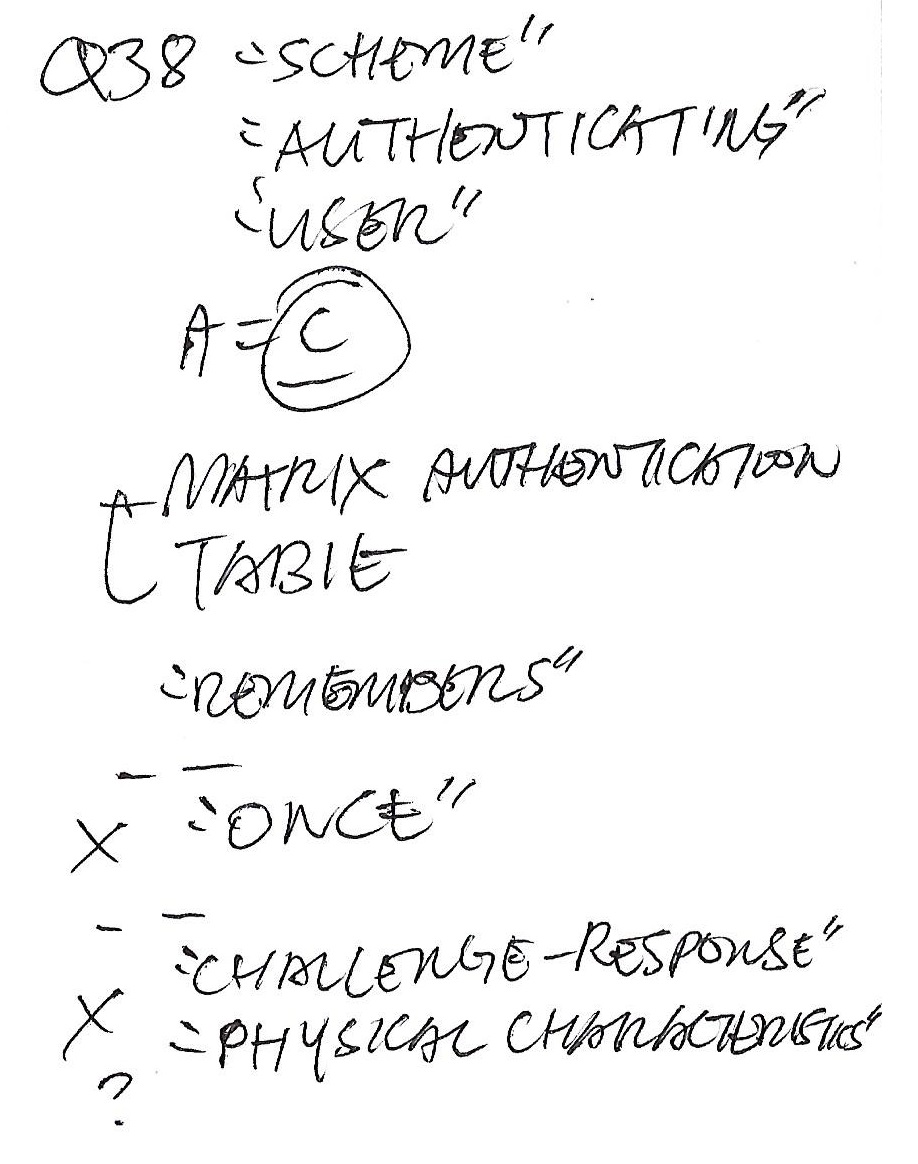 Q38 "SCHEME"
"AUTHENTICATING"
"USER"
A = C
MATRIX AUTHENTICATION
TABLE
"REMEMBERS"
— —
X "ONCE"
- —
"CHALLENGE-RESPONSE"
X "PHYSICAL CHARACTERISTICS"
?